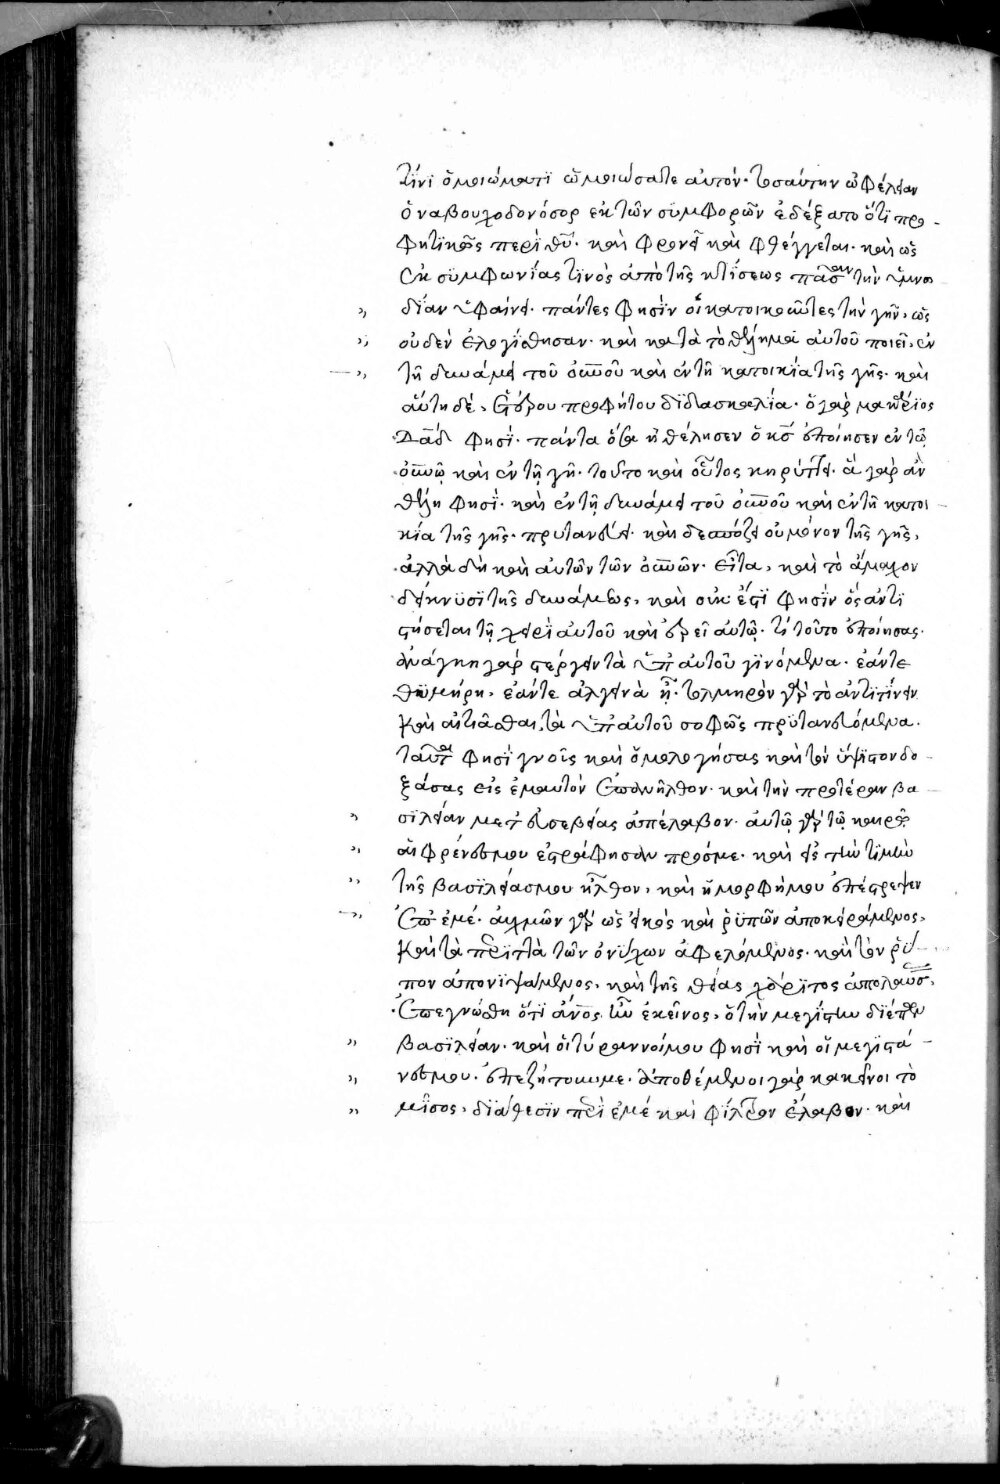 τίνι ὁμοιώματϊ ὡμοιώσατε αυτόν· τοσαύτην ὠφέλειαν
ὁ ναβουχοδονόσορ εκ τῶν σϋμφορῶν ἐδέξατο ὅτϊ προ
φητϊκῶς περὶ θῦ· καὶ φρονεῖ καὶ φθέγγεται· καὶ ὡς
ἐκ σϋμφωνίας τϊνὸς ἀπὸ τῆς κτίσεως πάσης τὴν ὑμνω
δίαν ὑφαίνει· πάντες φησὶν οἱ κατοικοῦντες τὴν γῆν, ὡς
οὐδὲν ἐλογίσθησαν· καὶ κατὰ τὸ θέλημα ἀυτοῦ ποιεῖ, ἐν
τῆ δυνάμει τοῦ οὐνοῦ καὶ ἐν τῆ κατοικία τῆς γῆς· καὶ
αὕτη δὲ, ἑτέρου προφήτου δϊδασκαλία· ὁ γὰρ μακάριος
Δᾱδ φησί· πάντα ὅσα ἠθέλησεν ὁ κς ἐποίησεν ἐν τῶ
οὐνῶ καὶ ἐν τῆ γῆ· τοῦτο καὶ οὗτος κηρύττει· ἃ γὰρ ἂν
θέλη φησὶ· καὶ ἐν τῆ δυνάμει τοῦ οὐνοῦ καὶ ἐν τῆ κατοι
κία τῆς γῆς· πρυτανεύει· καὶ δεσπόζει οὐ μόνον τῆς γῆς,
ἀλλὰ δὴ καὶ αὐτῶν τῶν οὐνῶν· εἶτα, καὶ τὸ ἄμαχον
δείκνϋσι τῆς δυνάμεως, καὶ οὐκ ἔστϊ φησὶν ὃς ἀντι
στήσεται τῆ χειρὶ αυτοῦ καὶ ἐρεῖ αυτῶ· τί τοῦτο ἐποίησας·
ἀνάγκη γὰρ στέργειν τὰ ὑπ' αυτοῦ γϊνόμενα· ἐάν τε
θϋμήρη, ἐάν τε ἀλγεινὰ ἦ· τολμηρὸν γὰρ τὸ ἀντϊτείνειν
καὶ αἰτιᾶσθαι, τὰ ὑπ' αυτοῦ σοφῶς πρϋτανευόμενα·
ταῦτα φησὶ γνοὺς καὶ ὁμολογήσας καὶ τὸν ὕψϊστον δο
ξάσας εἰς ἐμαυτὸν ἐπανῆλθον· καὶ τὴν προτέραν βα
σϊλείαν μετ' εὐσεβείας ἀπέλαβον· αὐτῶ γὰρ τῶ καιρῶ
αἱ φρένες μου ἐστράφησαν πρός με· καὶ εἰς τὴν τϊμὴν
τῆς βασϊλείας μου ἦλθον, καὶ ἡ μορφή μου ἐπέστρεψεν
ἐπ' ἐμέ· αὐχμῶν γὰρ ὡς εἰκὸς καὶ ῥϋπῶν ἀποκειράμενος,
καὶ τὰ περϊττὰ τῶν ὀνϋχων ἀφελόμενος· καὶ τὸν ῥύ
πον ἀπονϊψάμενος, καὶ τῆς θείας χάρϊτος ἀπολαύσας,
ἐπεγνώσθη ὅτϊ ἀνος ὢν ἐκεῖνος, ὁ τὴν μεγίστην διέπων
βασϊλείαν· καὶ οἱ τύραννοί μου φησὶ καὶ οἱ μεγιστᾶ
νές μου· ἐπεζήτουν με· ἀποθέμενοι γὰρ κἀκεῖνοι τὸ
μῖσος, διάθεσϊν περὶ ἐμὲ καὶ φίλτρον ἔλαβον· καὶ